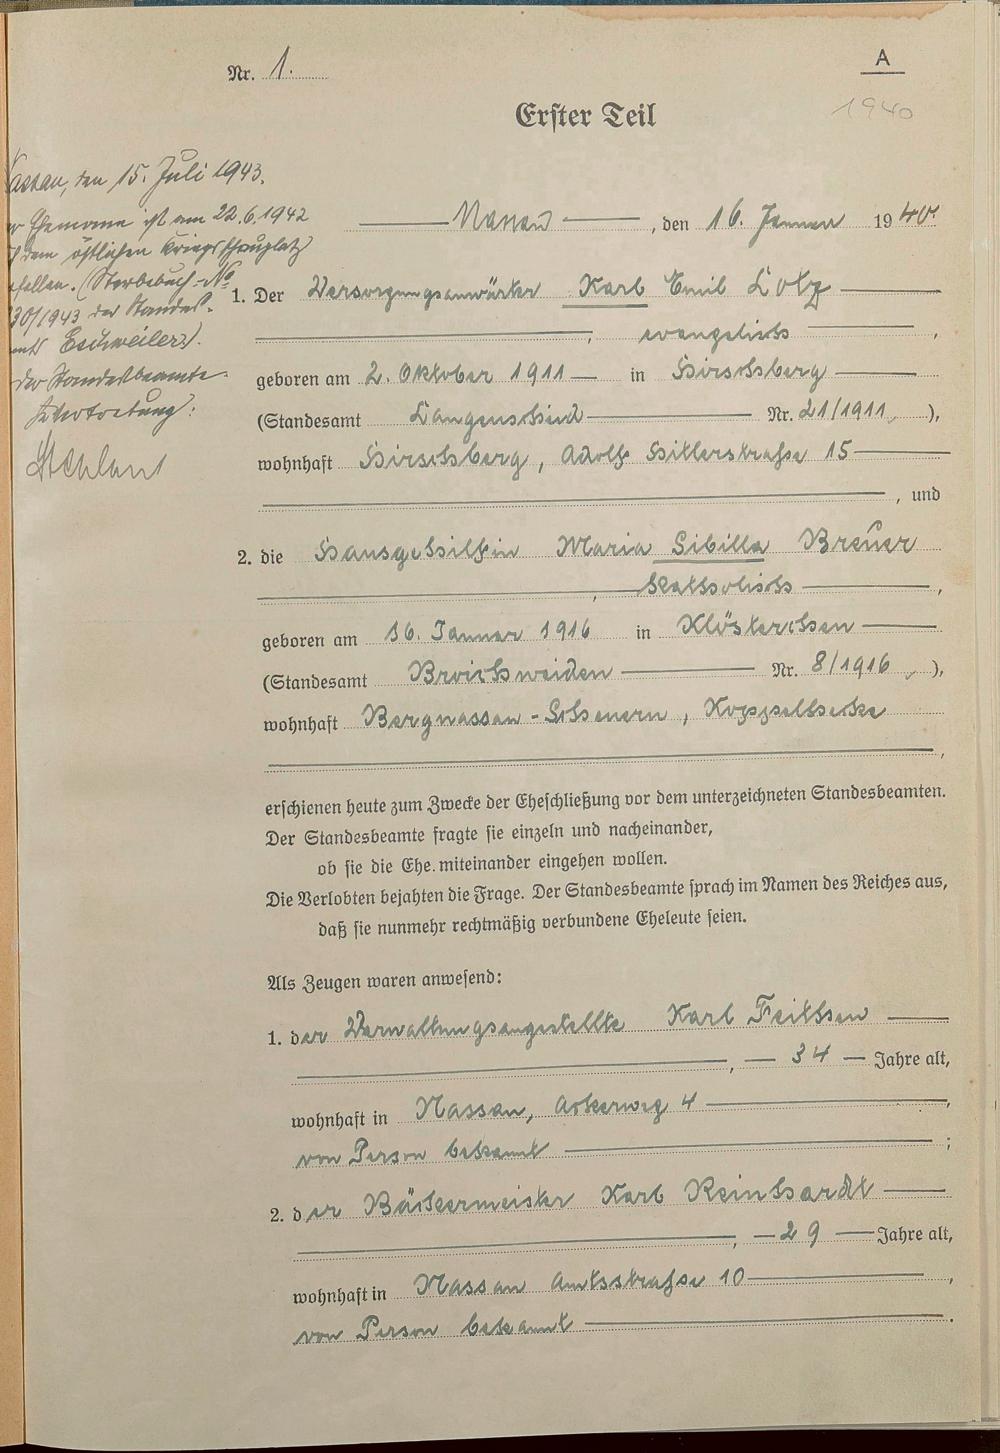 Nr. 1.
A
1940
Erster Teil
Nassau, den 16. Januar 1940.
1. Der Versorgungsanwärter Karl Emil Lotz
, evangelisch,
geboren am 2. Oktober 1911 in Hirschberg
(Standesamt Langenscheid Nr. 21/1911,),
wohnhaft Hirschberg, Adolf Hitlerstraße 15
, und
2. die Hausgehilfin Maria Sibilla Breuer
, katholisch,
geboren am 16. Januar 1916 in Klösterchen
(Standesamt Broichweiden Nr. 8/1916,),
wohnhaft Bergnassau-Scheuern,
,
erschienen heute zum Zwecke der Eheschließung vor dem unterzeichneten Standesbeamten.
Der Standesbeamte fragte sie einzeln und nacheinander,
ob sie die Ehe miteinander eingehen wollen.
Die Verlobten bejahten die Frage. Der Standesbeamte sprach im Namen des Reiches aus,
daß sie nunmehr rechtmäßig verbundene Eheleute seien.
Als Zeugen waren anwesend:
1. der Verwaltungsangestellte Karl Feithen
, — 34 — Jahre alt,
wohnhaft in Nassau, Ackerweg 4,
von Person bekannt;
2. der Bäckermeister Karl Reinhardt
, — 29 — Jahre alt,
wohnhaft in Nassau Amtsstraße 10,
von Person bekannt.
Nassau, den 15. Juli 1943.
Ehemann ist am 22.6.1942
dem östlichen Kriegsschauplatz
fallen. (Sterbebuch-No
30/1943 des Standes-
amts Eschweiler).
Der Standesbeamte
In Vertretung: